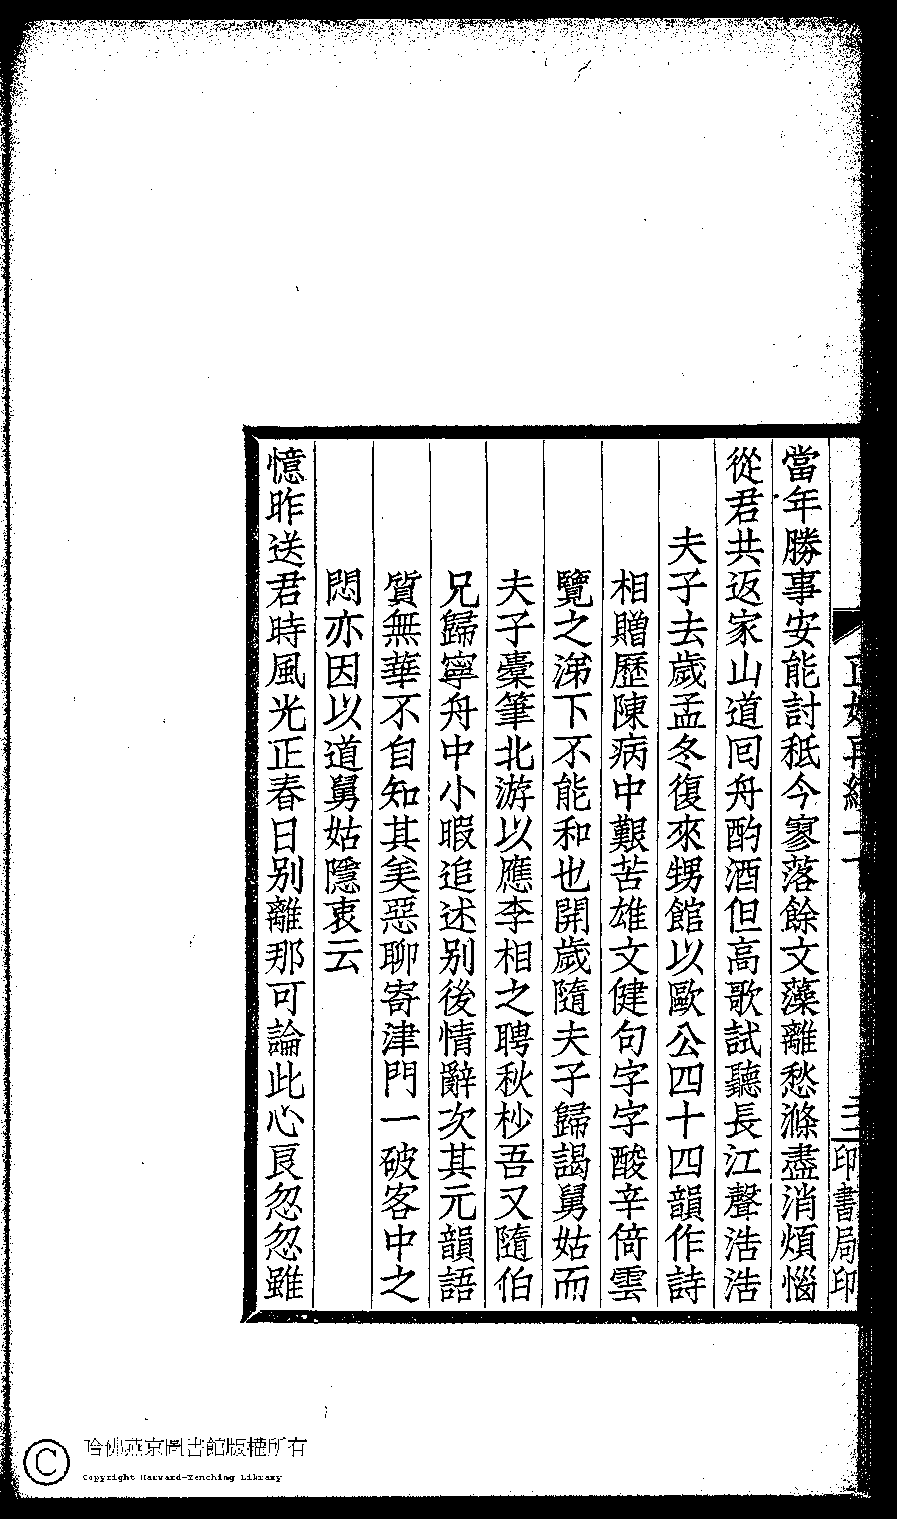 當年勝事安能討秪今寥落餘文藻離愁滌盡消煩惱
從君共返家山道回舟酌酒但高歌試聽長江聲浩浩
夫子去歲孟冬復來甥館以歐公四十四韻作詩
相贈歷陳病中艱苦雄文健句字字酸辛倚雲
覽之涕下不能和也開歲隨夫子歸謁舅姑而
夫子橐筆北游以應李相之聘秋杪吾又隨伯
兄歸寧舟中小暇追述别後情辭次其元韻語
質無華不自知其矣惡聊寄津門一破客中之
悶亦因以道舅姑隱衷云
憶昨送君時風光正春日别離那可論此心良忽忽雖
印書局印
哈佛燕京圖書館版權所有
Copyright Harvard-Yenching Library